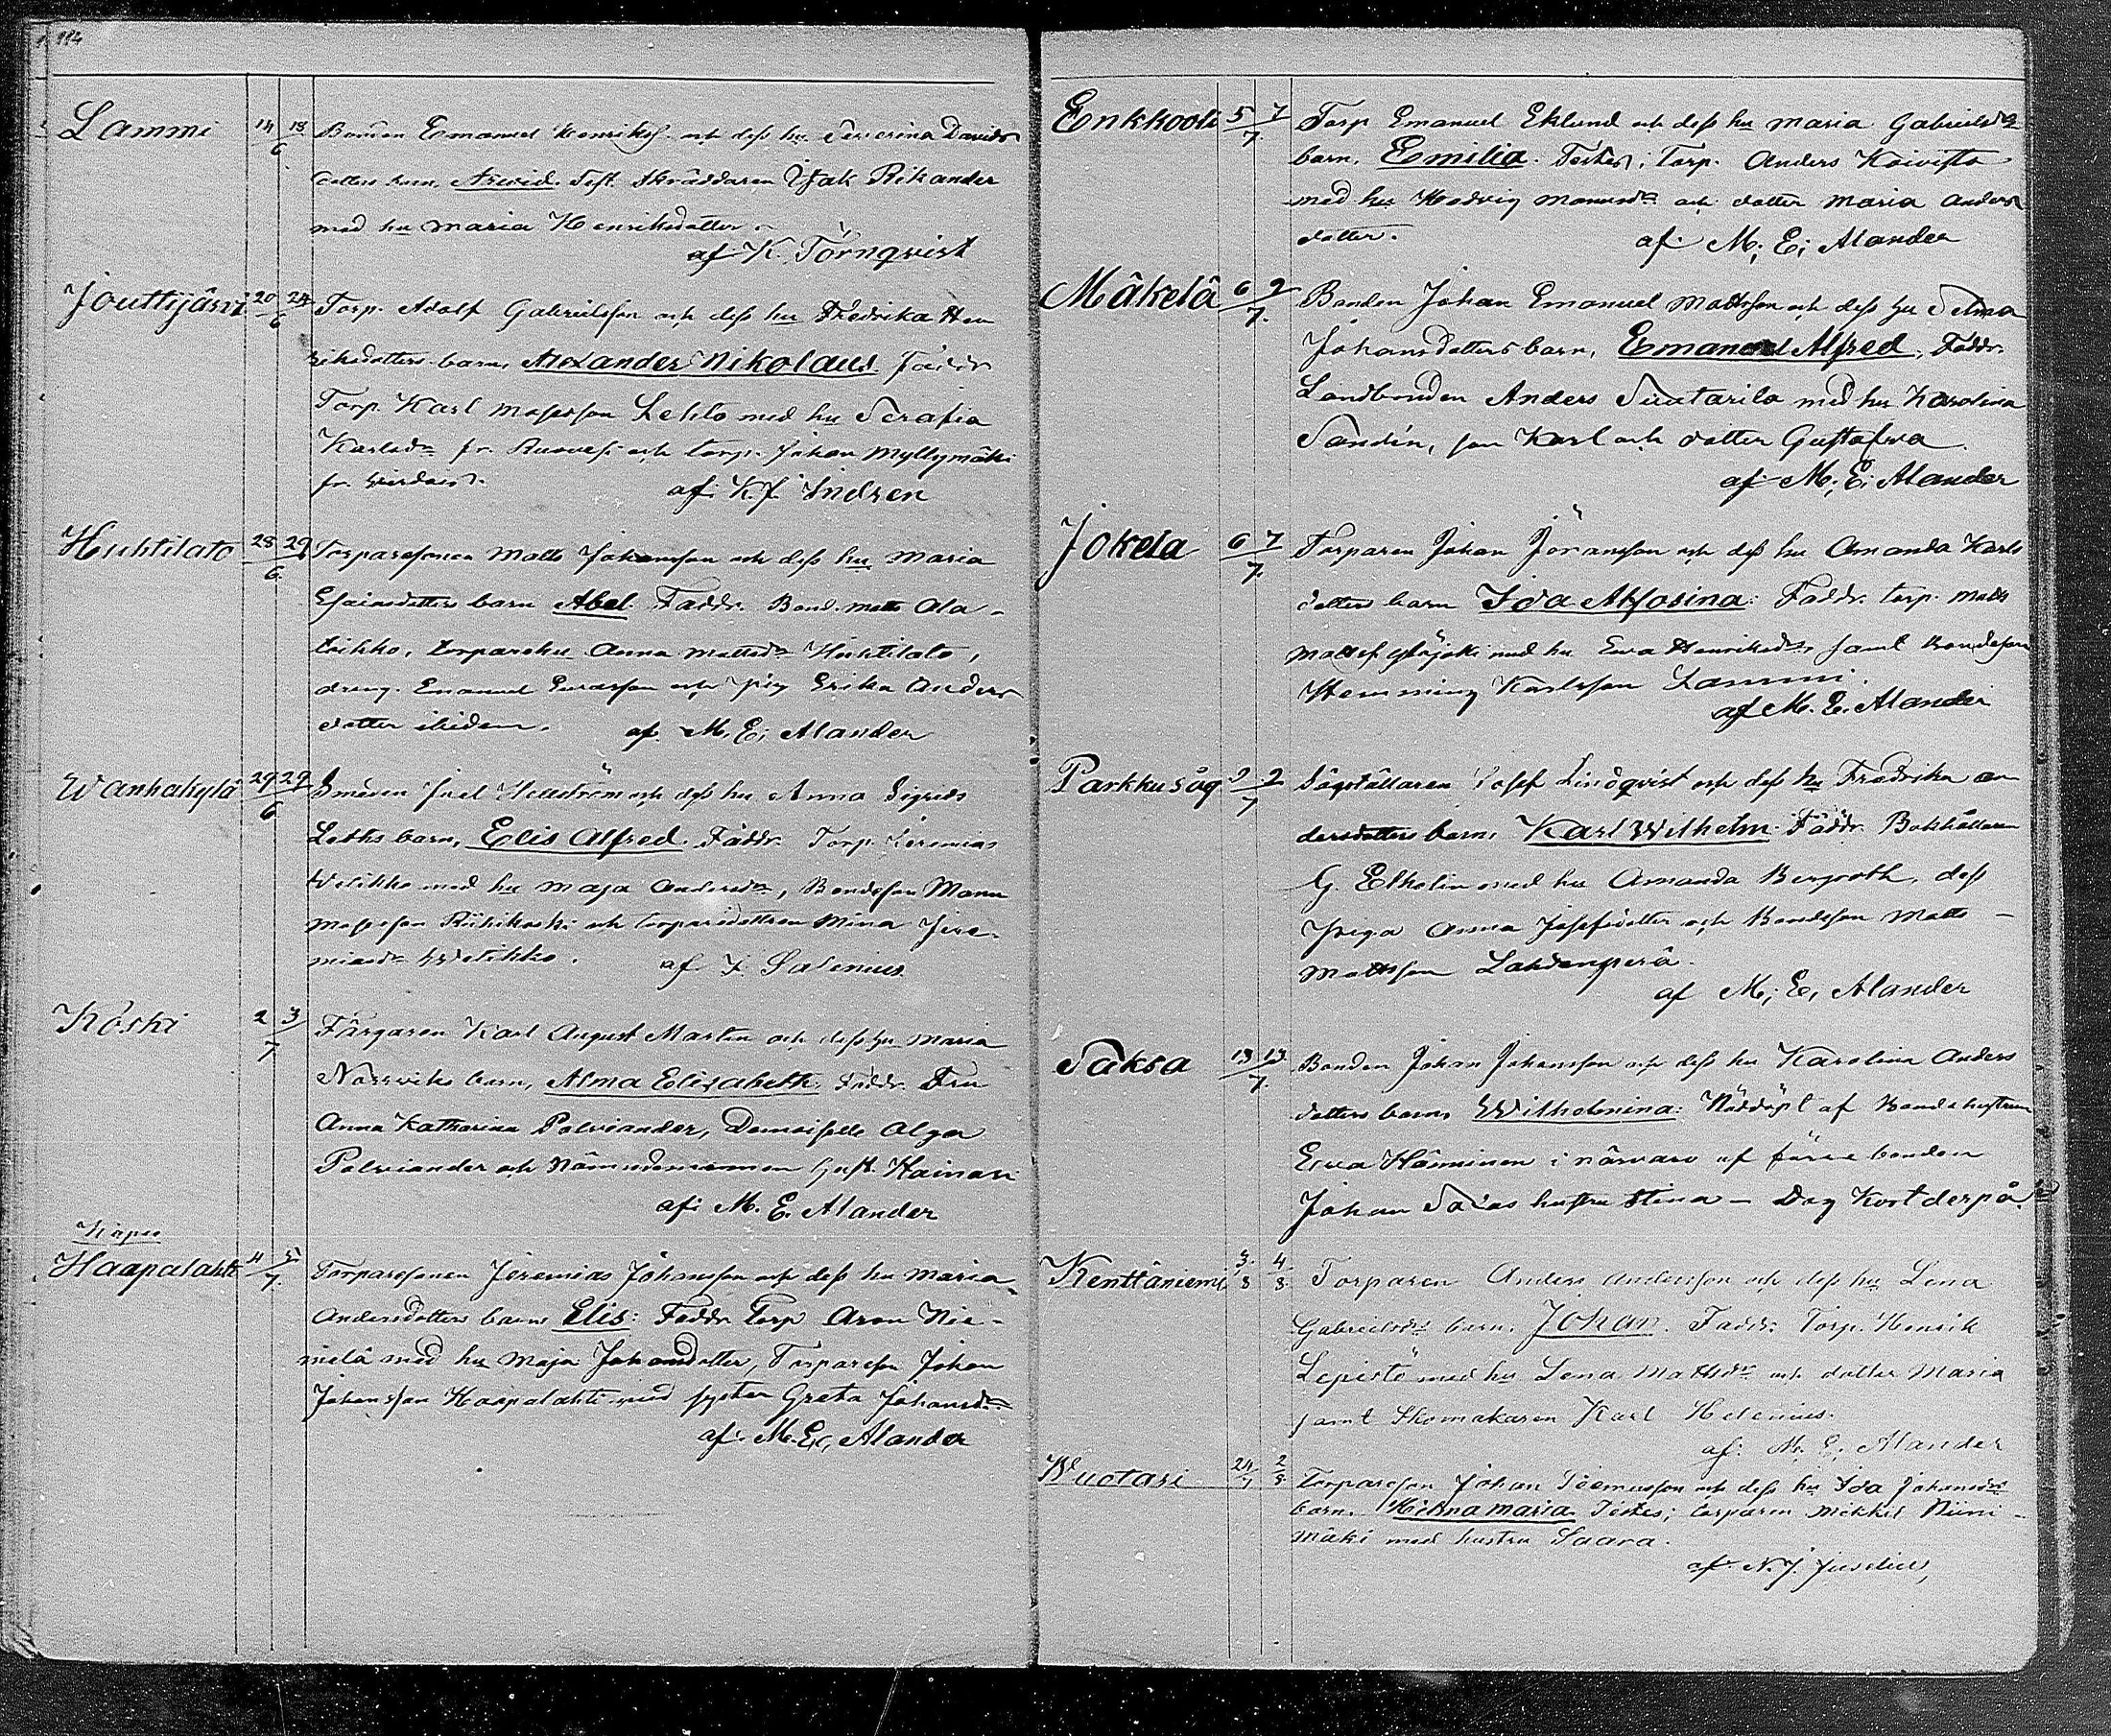 114
Lammi 14 15/6 Bonden Emanuel Henrikss. och dess hu Severina Davids
dotters barn, Arwid. Test. Skräddaren Isak Rikander
med hu Maria Henriksdotter.
af K. Törnqvist
Jouttijärvi 20 24/6 Torp. Adolf Gabrielsson och dess hu Fredrika Hen
riksdotters barn, Alexander Nikolaus. Faddr.
Torp. Karl Mosesson Lehto med hu Serafia
Karlsdr fr. Ruovesi och torp. Johan Myllymäki
fr. Wirdois.
af K. J. Indren
Huhtilato 28 29/6 Torparesonen Matts Johansson och dess hu Maria
Esaiasdotters barn Abel. Faddr. Bond. Matts Ala-
torparehu Anna Mattsdr Huhtilato,
dreng. Emanuel och pig Erika Anders
dotter ibidem.
af M. E. Alander
Wanhakylä 29 29/6 Smeden Joel Hellström och dess hu Anna Sigrids
Leths barn, Elis Alfred. Faddr. Torp. Jeremias
Welikko med hu Maja Andersdr, Bondeson Manu
Mosesson Riihikoski och torparedottren Mina Jere-
miasdr Welikko.
af F. Salenius
Koski 2 3/7 Färgaren Karl August Martin och dess hu Maria
barn, Alma Elisabeth. Faddr. Fru
Anna Katharina Palviander, Demoiselle Olga
Palviander och Nämndemannen Gust. Kainari
af M. E. Alander
Haapalahti 4 5/7 Torparesonen Jeremias Johansson och dess hu Maria
Andersdotters barn Elis: Faddr Torp Aron Nie-
melä med hu Maja Johansdotter, Torpareson Johan
Johansson Haapalahti med syster Greta Johansdr
af M. E. Alander
Enkkoola 5 7/7 Torp Emanuel Eklund och dess hu Maria Gabrielsdr
barn, Emilia. Testes; Torp. Anders Koivisto
med hu Hedvig Manusdr och dotter Maria Anders
dotter.
af M. E. Alander
Mäkelä 6 9/7 Bonden Johan Emanuel Mattsson och dess hu Selma
Johansdotters barn, Emanuel Alfred. Faddr.
Landbonden Anders Suatarila med hu Karolina
Sandin, son Karl och dotter Gustafva
af M. E. Alander
Jokela 6 7/7 Torparen Johan Jöransson och dess hu Amanda Karls
dotters barn Ida Alfosina: Faddr. torp. Matts
Mattsson Ylijoki med hu Eva Henriksdr, samt bondeson
Hemming Karlsson Lammi.
af M. E. Alander
Parkku såg 2 2/7 Sågställaren Josef Lindqvist och dess hu Fredrika An
dersdotters barn, Karl Wilhelm. Faddr. Bokhållaren
G. Ekholin med hu Amanda Bergroth, dess
piga Anna Josefsdotter och Bondeson Matts
Mattsson Lahdenperä.
af M. E. Alander
Saksa 13 13/7 Bonden Johan Johansson och dess hu Karolina Anders
dotters barn, Wilhelmina: Nöddöpt af bondehustrun
Eva Hänninen i närvaro af förre bonden
Johan Salas hustru Stina – Dog kort derpå
Kenttäniemi 3/8 4/8 Torparen Anders Andersson och dess hu Lena
Gabrielsdrs barn, Johan. Faddr. Torp. Henrik
Lepistö med hu Lena Mattsdr och dotter Maria
samt Skomakaren Karl Helenius.
af M. E. Alander
Wuotari 24/7 2/8 Torpareson Johan Joelsson och dess hu Ida Johansdrs
barn. Hilma Maria. Testes; torparen Mikkel Niini-
mäki med hustru Saara.
af N. J. Juselius,